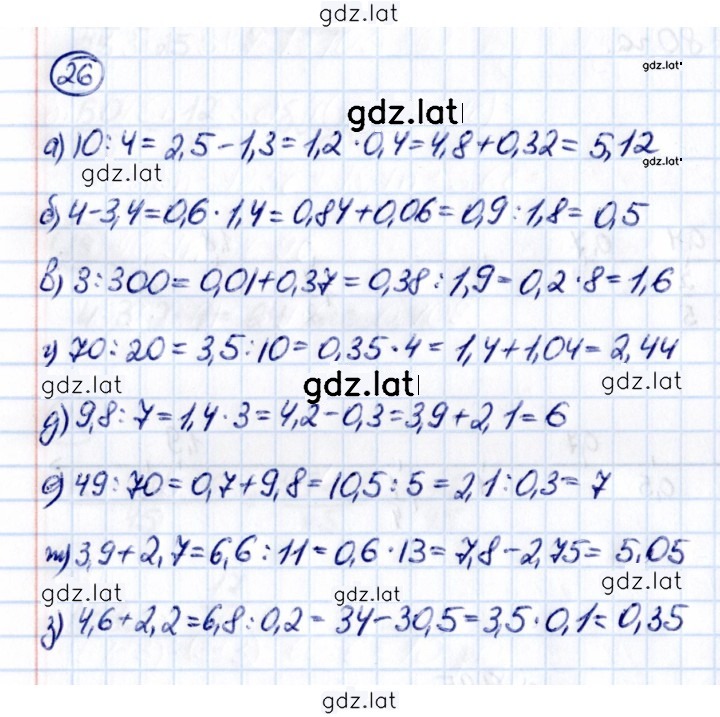 gdz.lat
26
gdz.lat
gdz.lat
а) 10:4=2,5-1,3=1,2·0,4=4,8+0,32=5,12
gdz.lat
gdz.lat
б) 4-3,4=0,6·1,4=0,84+0,06=0,9:1,8=0,5
в) 3:300=0,01+0,37=0,38:1,9=0,2·8=1,6
г) 70:20=3,5:10=0,35·4=1,4+1,04=2,44
gdz.lat gdz.lat gdz.lat
д) 9,8:7=1,4·3=4,2-0,3=3,9+2,1=6
е) 49:70=0,7+9,8=10,5:5=2,1:0,3=7
ж) 3,9+2,7=6,6:11=0,6·13=7,8-2,75=5,05
gdz.lat gdz.lat gdz.lat
з) 4,6+2,2=6,8:0,2=34-30,5=3,5·0,1=0,35
gdz.lat